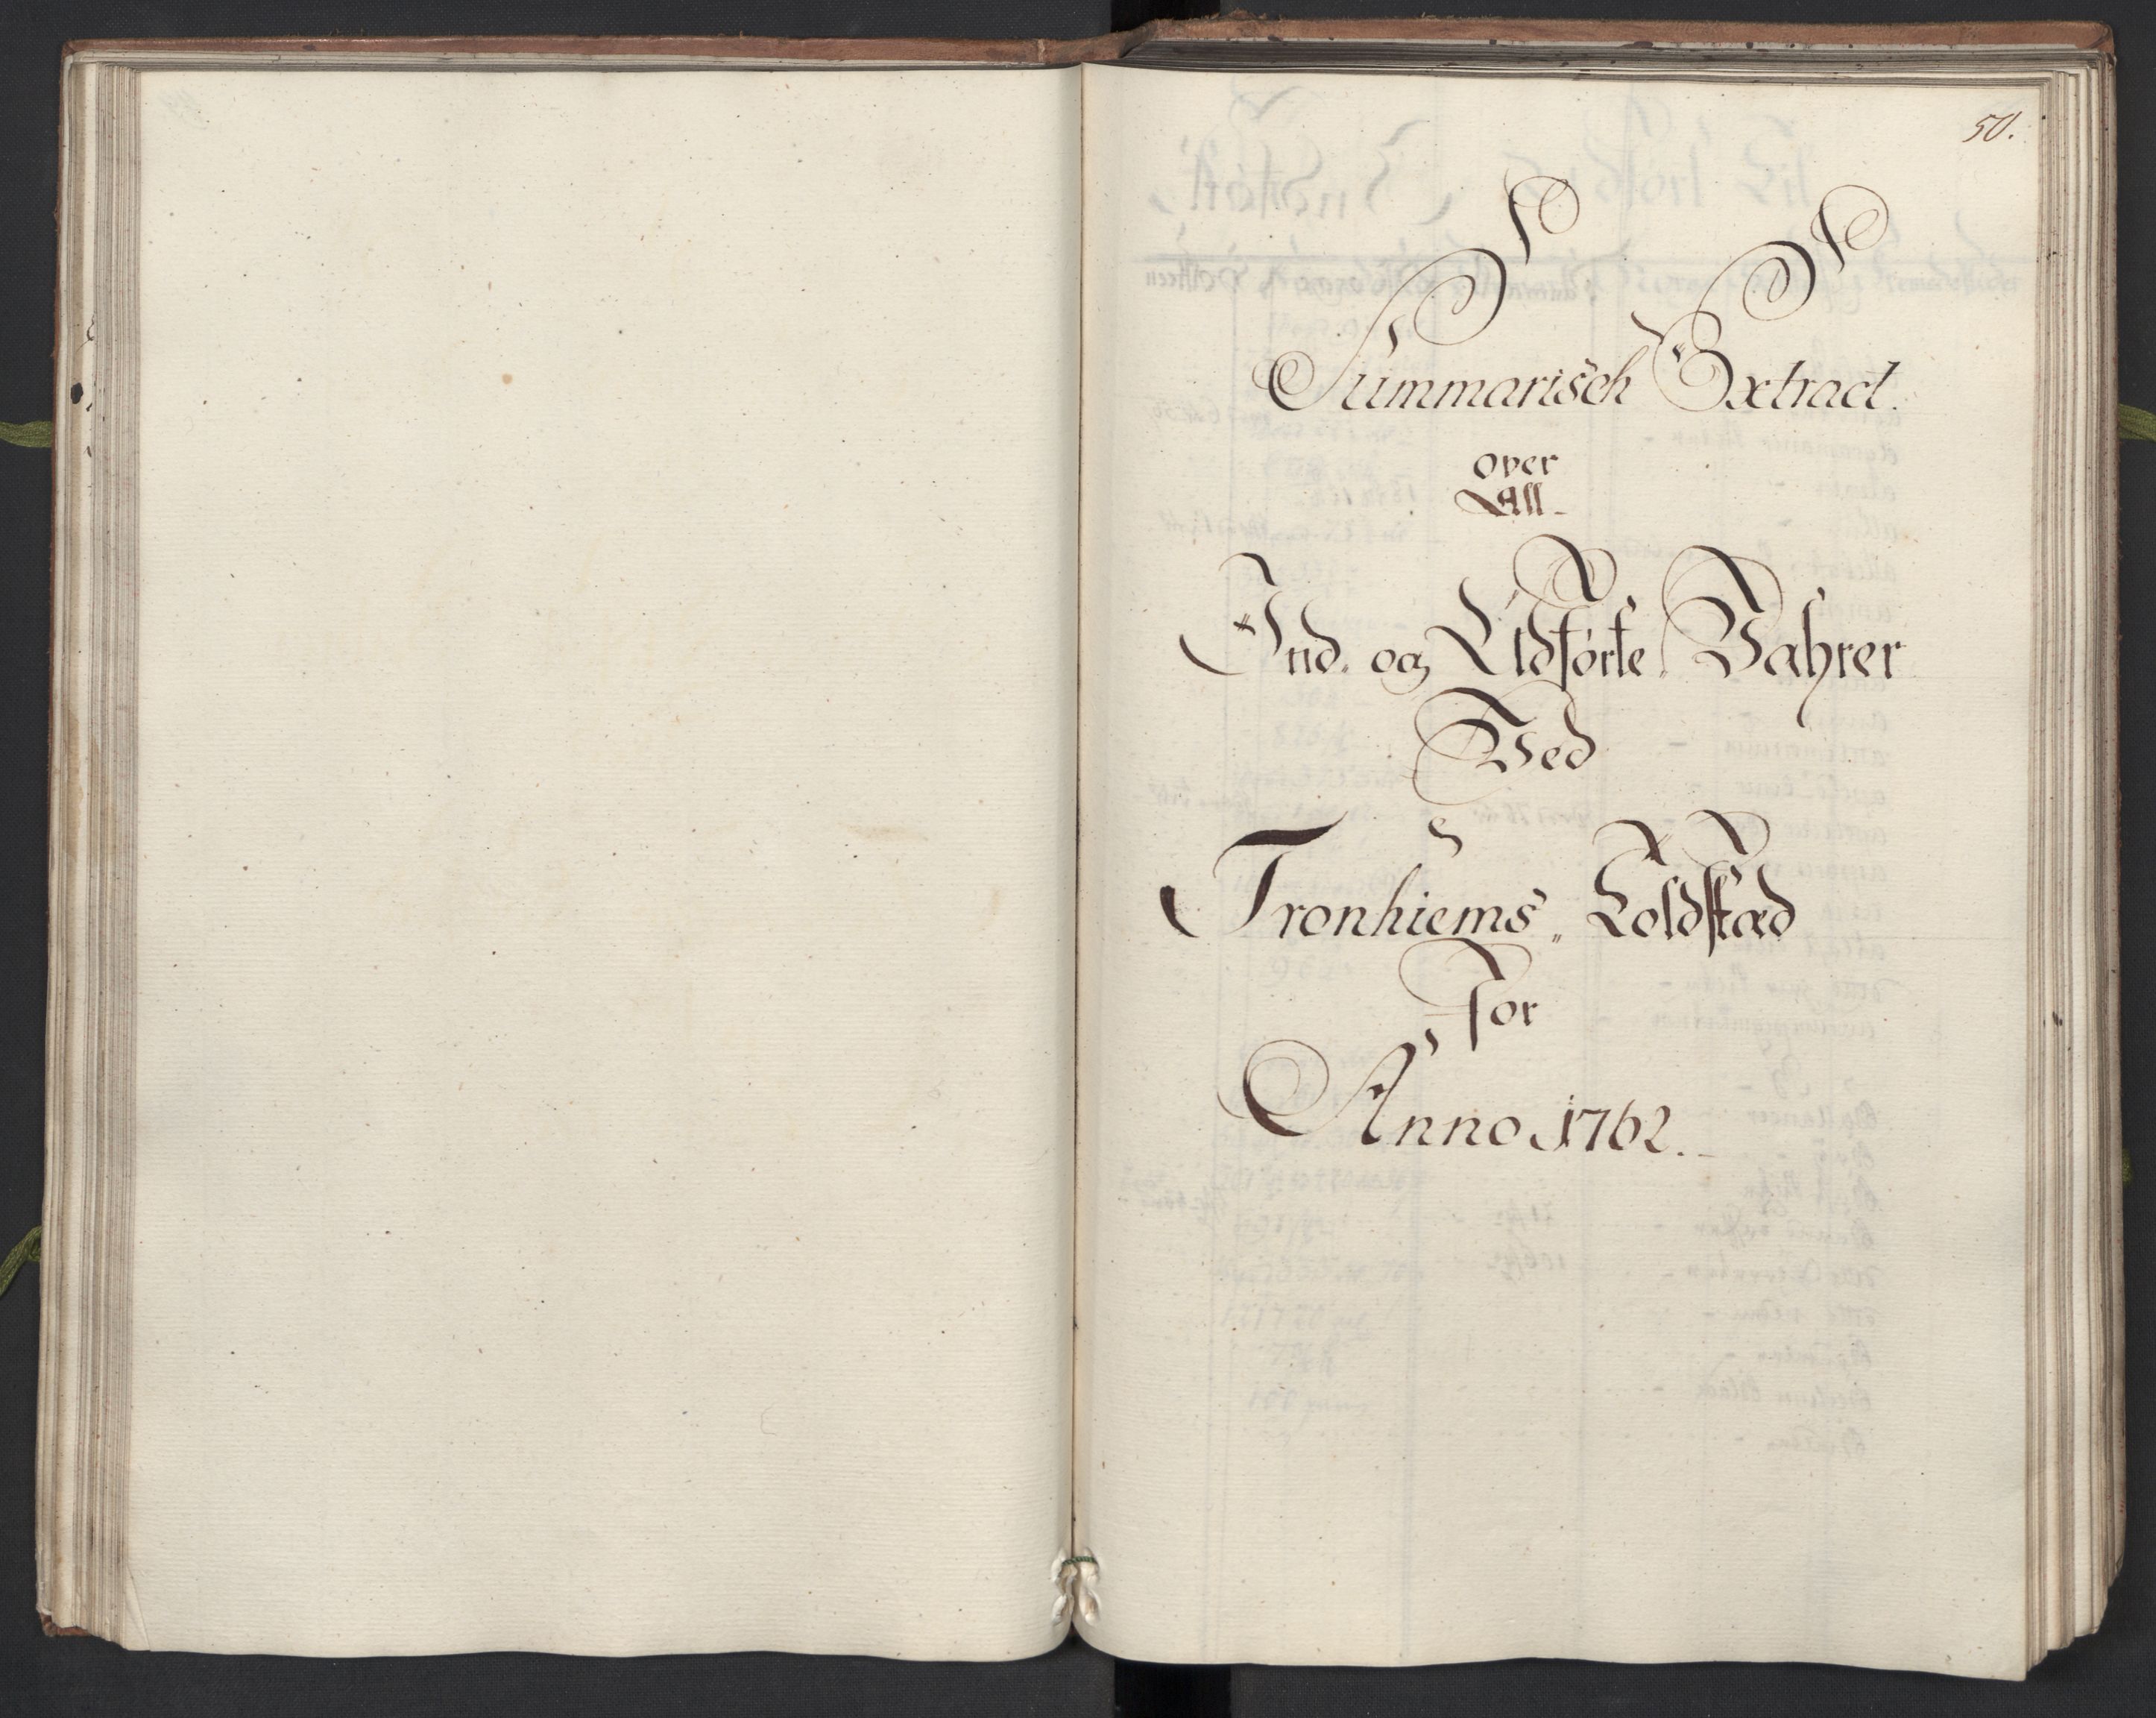 50.
Summarisch Extract.
over
All
Ind- og Udførte Vahrer
Ved
Tronhiems Toldstæd
For
Anno 1762.